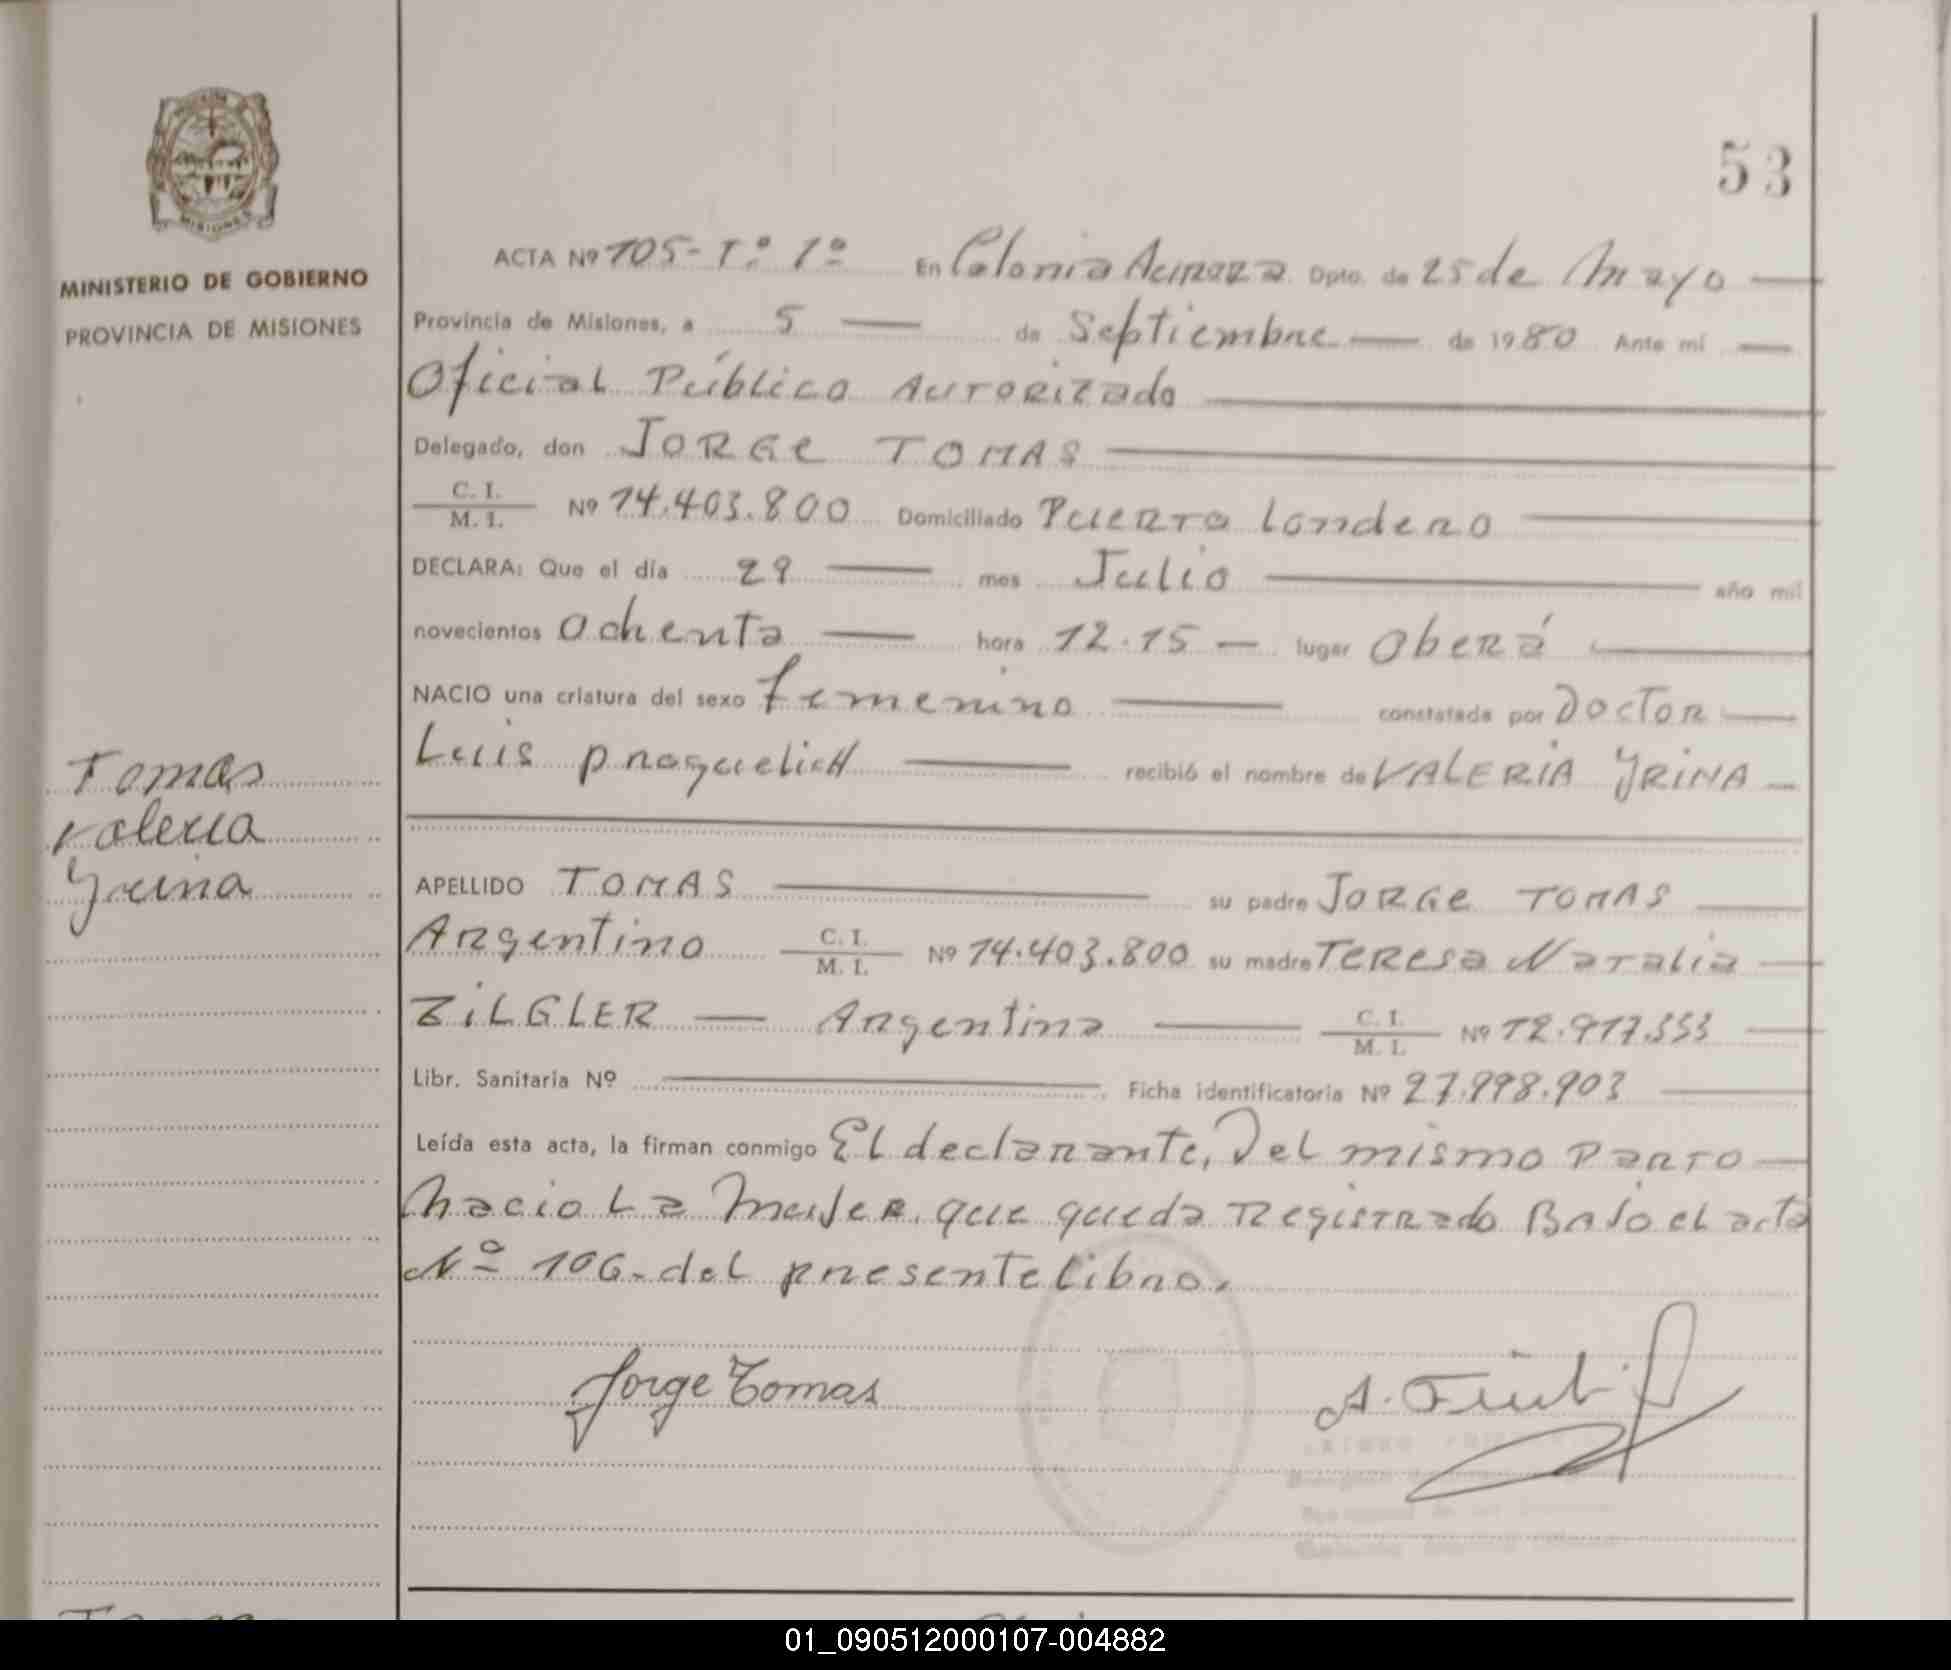 53
MINISTERIO DE GOBIERNO
PROVINCIA DE MISIONES
ACTA Nº 105-Tº 1º En Colonia Aurora Dpto. de 25 de Mayo
Provincia de Misiones, a 5 de Septiembre de 1980 Ante mí
Oficial Público Autorizado
Delegado, don JORGE TOMAS
C. I.
M. I. Nº 14.403.800 Domiciliado Puerto Londero
DECLARA: Que el día 29 mes Julio año mil
novecientos ochenta hora 12.15 lugar Oberá
NACIO una criatura del sexo femenino constatada por Doctor
Luis recibió el nombre de VALERIA YRINA
Tomas
Valeria
Yrina
APELLIDO TOMAS su padre JORGE TOMAS
Argentino C. I.
M. I. Nº 14.403.800 su madre Teresa Natalia
ZILGLER Argentina C. I.
M. I. Nº 12.917.333
Libr. Sanitaria Nº Ficha identificatoria Nº 27.998.903
Leída esta acta, la firman conmigo El declarante, Del mismo Parto
Nacio La Mujer que queda Registrado Bajo el acta
Nº 106 del presente libro.
Jorge Tomas
01_090512000107-004882